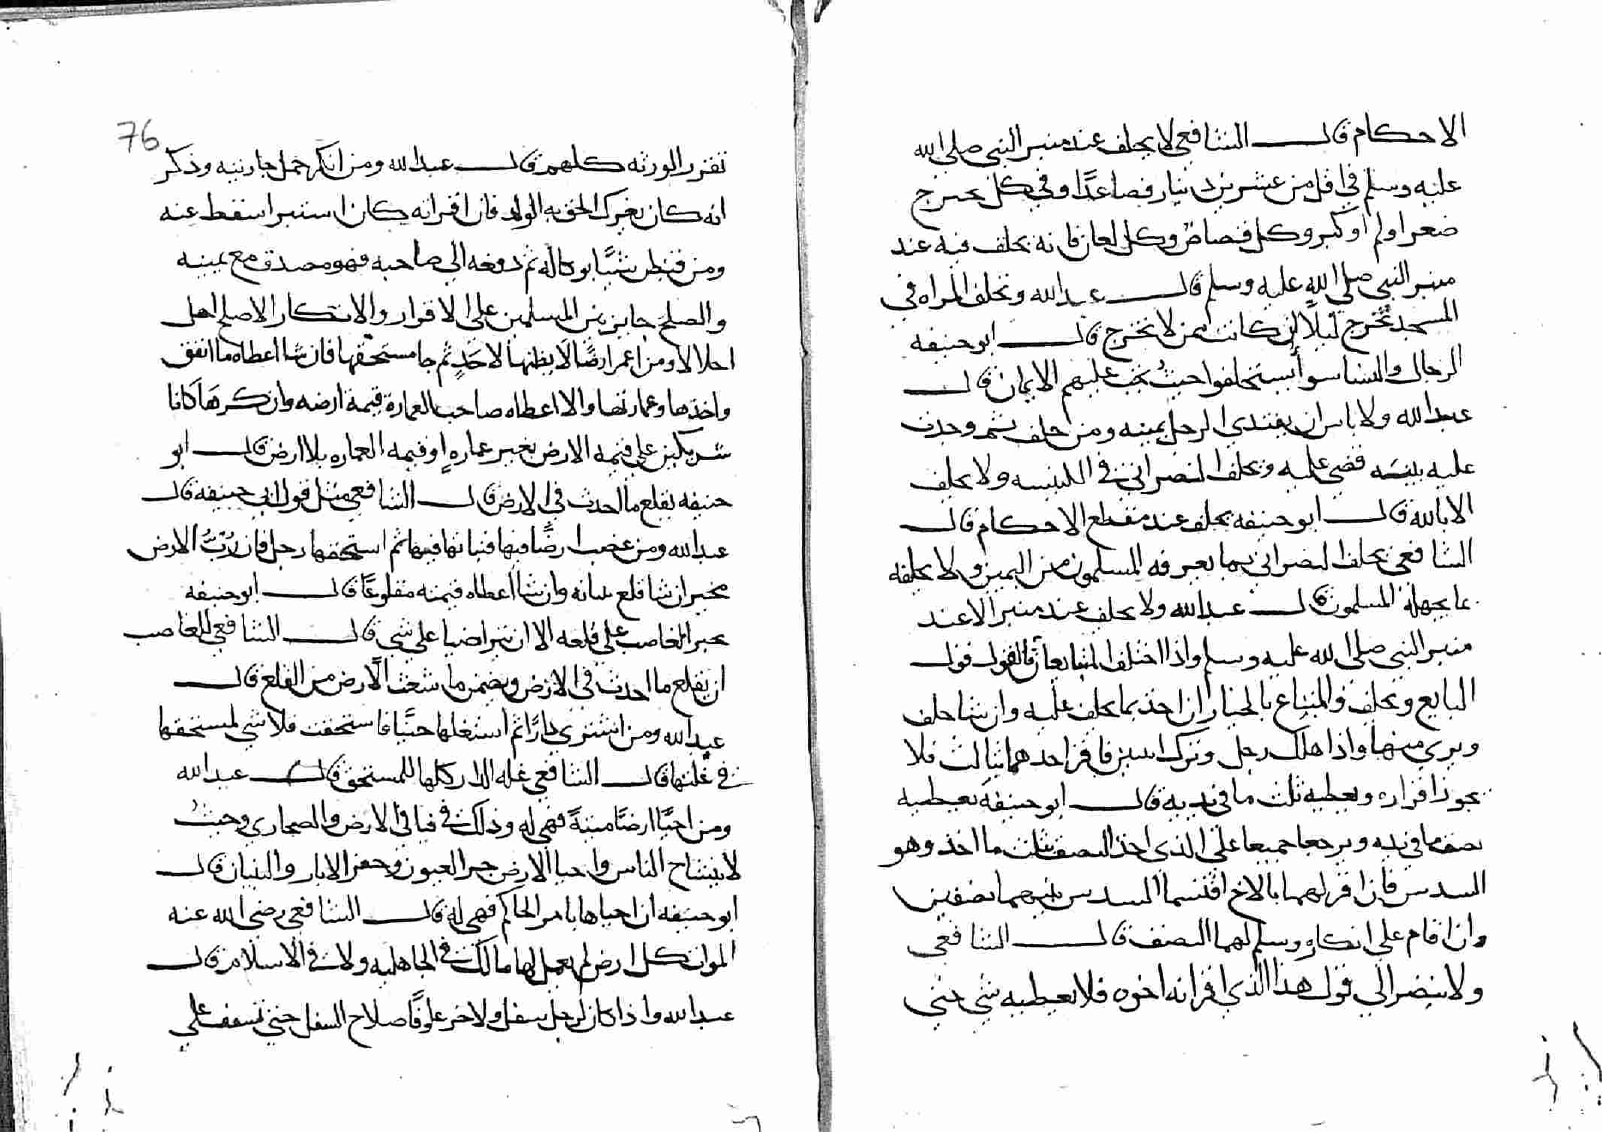 الاحكام قال الشافعي لا يحلف عند منبر النبي صلى الله
عليه وسلم في اقل من عشرين دينار فصاعدًا وفي كل جرح
صغر او لم او كبر وكل قصاص وكل لعان فانه يحلف فيه عند
منبر النبي صلى الله عليه وسلم قال عبد الله وتحلف المراه في
المسجد تخرج ليلًا ان كانت ممن لا تخرج قال ابو حنيفه
الرجال والنسا سوا يستحلفوا حيث يجب عليهم الايمان قال
عبد الله ولا باس ان يفتدى الرجل يمينه ومن حلف ثم وجدت
عليه بينه قضي عليه ويحلف النصراني في الكنيسه ولا يحلف
الا بالله قال ابو حنيفه يحلف عند مقطع الاحكام قال
الشافعي يحلف النصراني بما يعرفه المسلمون من اليمين ولا يحلفه
بما يجهله المسلمون قال عبد الله ولا يحلف عند منبر الا عند
منبر النبي صلى الله عليه وسلم واذا اختلف المتبايعان فالقول قول
البايع ويحلف والمبتاع بالخيار ان اخذ بما يحلف عليه وان شا حلف
وبري منها واذا هلك رجل وترك ابنين فاقر احدهما بثالث فلا
يجوز اقراره ويعطيه ثلث ما في يديه قال ابو حنيفه يعطيه
نصف ما في يديه ويرجعا جميعا على الذي اخذ النصف بثلث ما اخذ وهو
السدس فان اقر لهما بالاخ اقتسما السدس بينهما نصفين
وان اقام على انكاره وسلم لهما النصف قال الشافعي
ولا ينضر الي قول هذا الذي اقر انه اخوه فلا يعطيه شي حتى
76
تقرر الورثه كلهم قال عبد الله ومن انكر حمل جاريته وذكر
انه كان يعزل الحق به الولد فان اقر انه كان استبرا سقط عنه
ومن قبض شيًا بوكاله ثم دفعه الى صاحبه فهو مصدق مع يمينه
والصلح جايز بين المسلمين على الاقرار والانكار الا صلح احل
احلالا ومن اعمر ارضًا لا يظنها لاحدٍ ثم جا مستحقها فان شا اعطاه ما انفق
واخذها وعمارتها والا اعطاه صاحب العمارة قيمة ارضه وان كرها كانا
شريكين على قيمة الارض بغير عماره او قيمه العماره بلا ارض قال ابو
حنيفه يقلع ما احدث في الارض قال الشافعي مثل قول ابي حنيفه قال
عبد الله ومن غصب ارضًا فبناها بنيانها فيها ثم استحقها رجل فان رب الارض
مخير ان شا قلع بنيانه وان شا اعطاه قيمته مقلوعًا قال ابو حنيفه
يجبر الغاصب على قلعه الا ان يتراضيا على شي قال الشافعي للغاصب
ان يقلع ما احدث في الارض ويضمن ما شعث الارض من القلع قال
عبد الله ومن اشترى دارًا ثم استغلها حينًا فاستحقت فلا شي لمستحقها
في غلتها قال الشافعي غله الدار كلها للمستحق قال عبد الله
ومن احيًا ارضًا ميتةً فهي له وذلك في فيافي الارض والصحاري وحيث
لا يتشاح الناس واحيا الارض جر العيون وحفر الابار والبنيان قال
ابو حنيفه ان احياها بامر الحاكم فهي له قال الشافعي رضي الله عنه
الموات كل ارض لم يعمل لها مالك في الجاهليه ولا في الاسلام قال
عبد الله واذا كان لرجل سفل ولاخر علو فاصلاح السفل حتى تسقف على